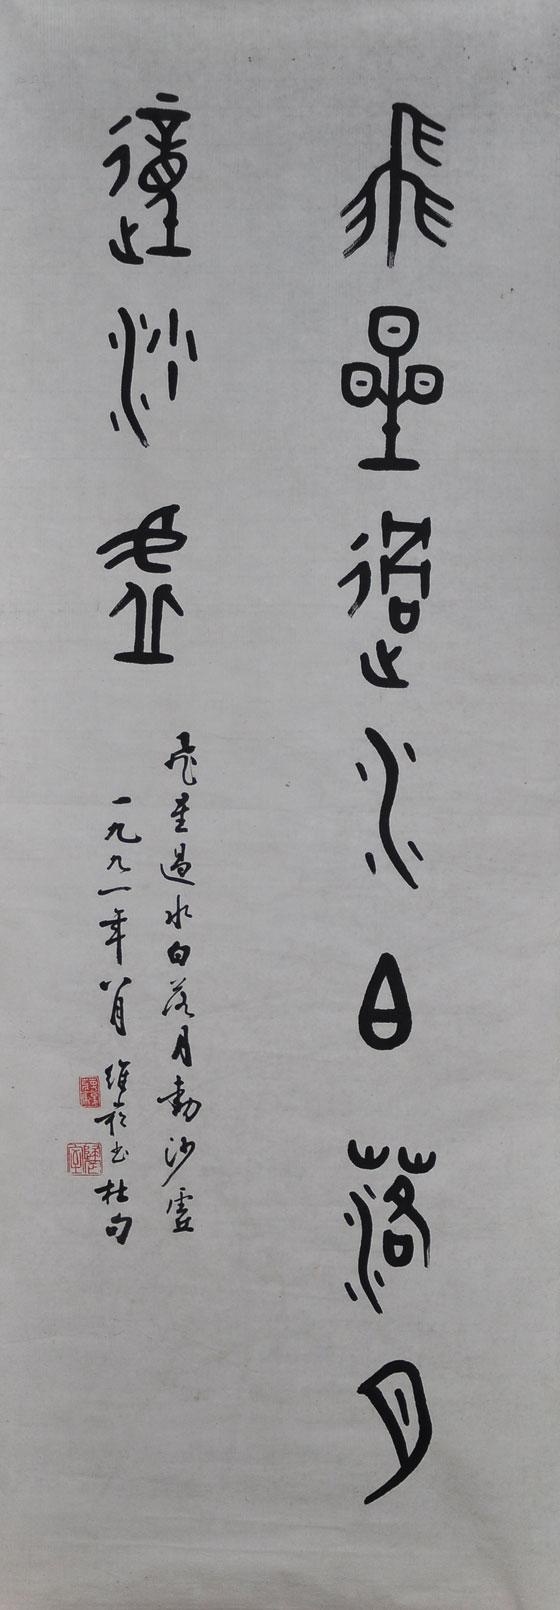 飛星過水白落月
動沙虛
飛星過水白落月動沙虛
一九九一年八月維崧書杜句